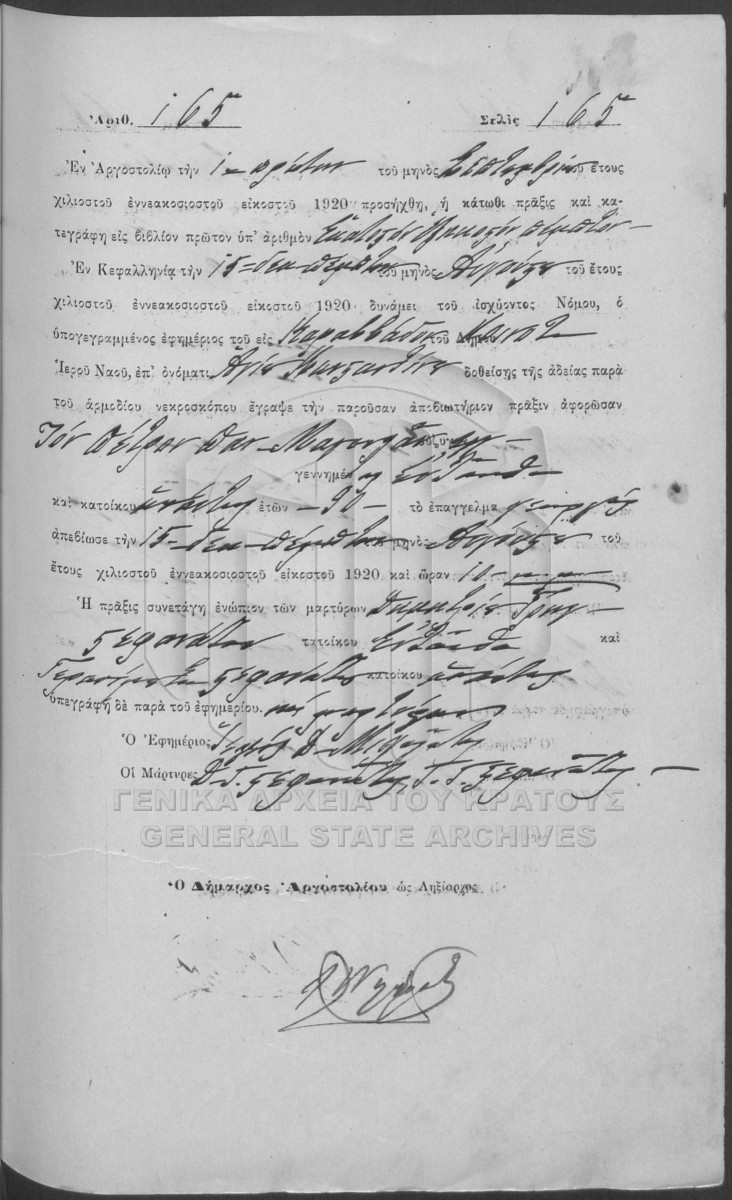 Ἀριθ. 165 Σελὶς 165
Ἐν Ἀργοστολίῳ τὴν 1 – πρώτην τοῦ μηνὸς Σεπτεμβρίου τοῦ ἔτους
χιλιοστοῦ ἐννεακοσιοστοῦ εἰκοστοῦ 1920 προσήχθη, ἡ κάτωθι πρᾶξις καὶ κα-
τεγράφη εἰς βιβλίον πρῶτον ὑπ' ἀριθμὸν Ἑκατοστὸν Ἑξηκοστὸν πέμπτον –
Ἐν Κεφαλληνίᾳ τὴν 15 = δεκ πέμπτην τοῦ μηνὸς Αὐγούστου τοῦ ἔτους
χιλιοστοῦ ἐννεακοσιοστοῦ εἰκοστοῦ 1920 δυνάμει τοῦ ἰσχύοντος Νόμου, ὁ
ὑπογεγραμμένος ἐφημέριος τοῦ εἰς Καραββάδο τοῦ Δήμου
Ἱεροῦ Ναοῦ, ἐπ' ὀνόματι Ἁγίου δοθείσης τῆς ἀδείας παρὰ
τοῦ ἁρμοδίου νεκροσκόπου ἔγραψε τὴν παροῦσαν ἀποβιωτήριον πρᾶξιν ἀφορῶσαν
Τὸν Πέτρον Παν.
γεννημέν ἐνταῦθα
καὶ κατοίκου ἐτῶν – 90 – τὸ ἐπάγγελμα γεωργός
ἀπεβίωσε τὴν 15 – δεκ – πέμπτην μηνὸς Αὐγούστου τοῦ
ἔτους χιλιοστοῦ ἐννεακοσιοστοῦ εἰκοστοῦ 1920 καὶ ὥραν 10
Ἡ πρᾶξις συνετάγη ἐνώπιον τῶν μαρτύρων
Ξεφονάτου τατοίκου ἐνταῦθα καὶ
Γερασίμου Ξεφονάτου κατοίκου
ὑπεγράφη δὲ παρὰ τοῦ ἐφημερίου.
Ὁ Ἐφημέριος
Οἱ Μάρτυρες Δ. Γ. Ξεφονάτος, Γ. Γ. Ξεφονάτος –
ΓΕΝΙΚΑ ΑΡΧΕΙΑ ΤΟΥ ΚΡΑΤΟΥΣ
GENERAL STATE ARCHIVES
Ὁ Δήμαρχος Ἀργοστολίου ὡς Ληξίαρχος